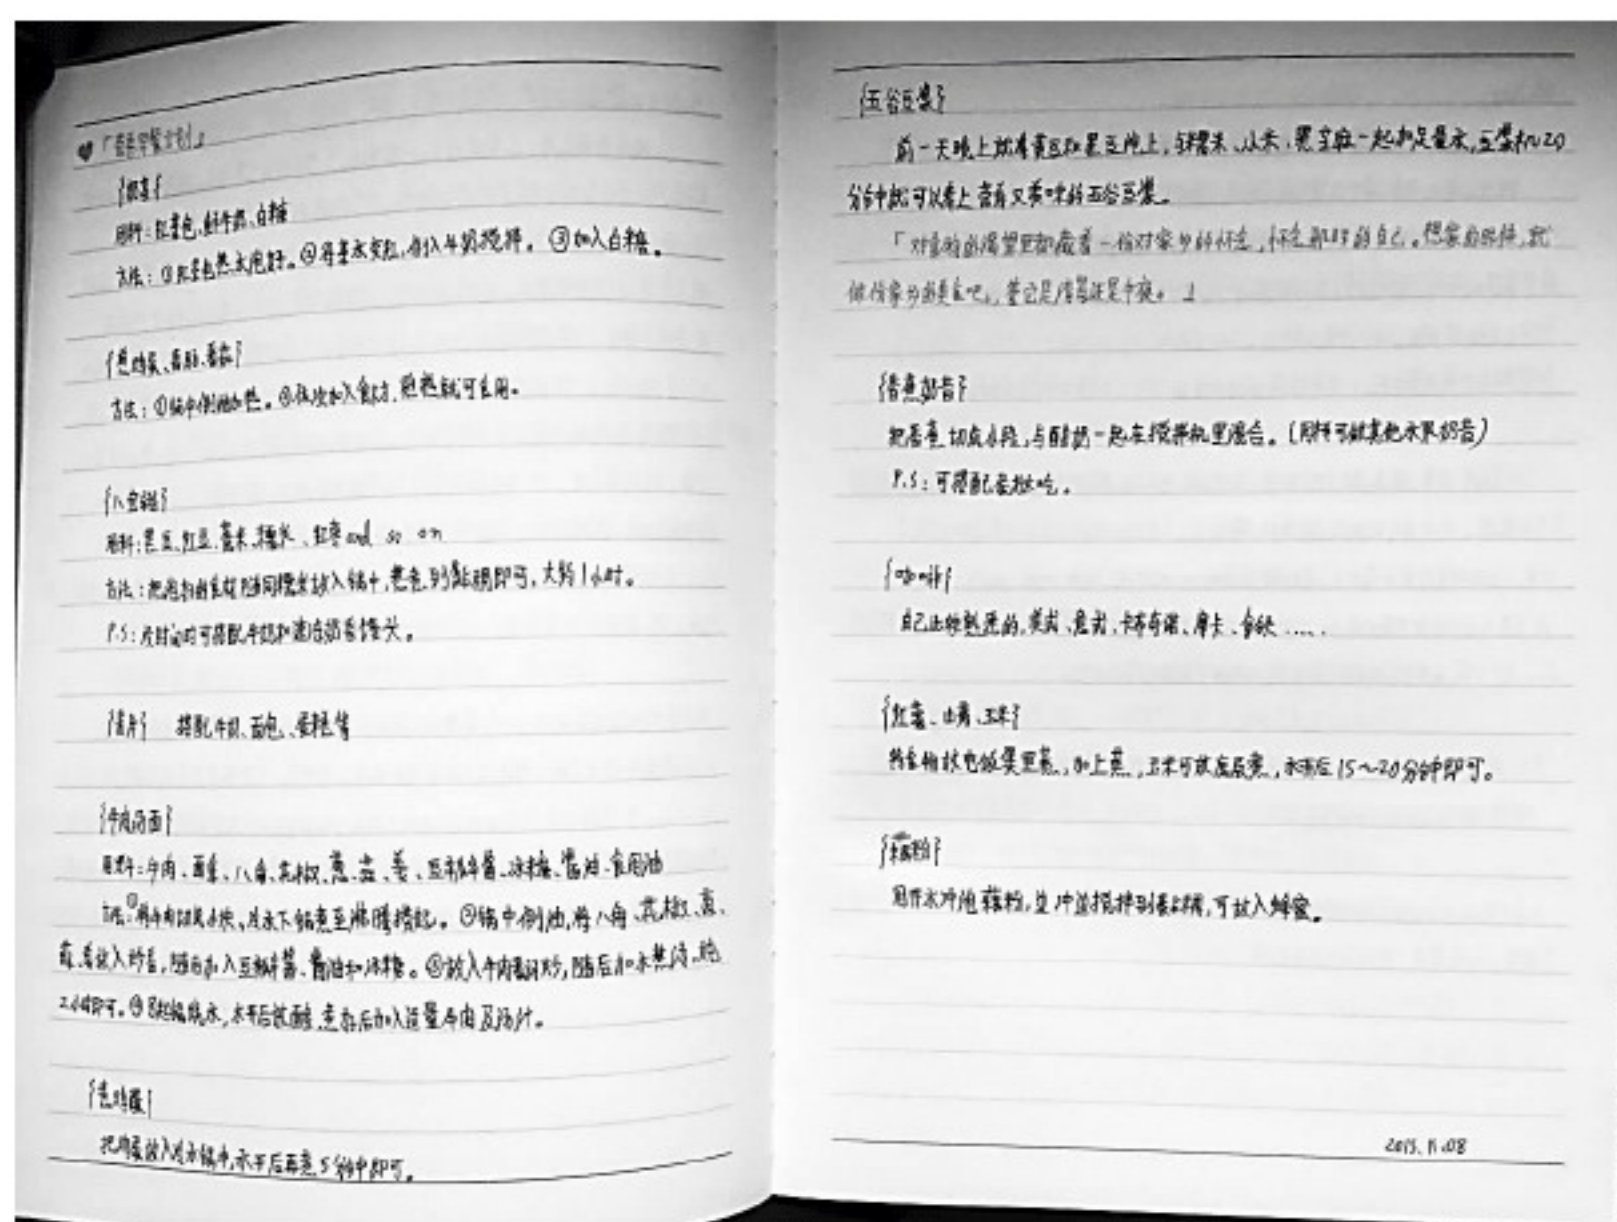 ♥「营养早餐计划」
{奶茶}
用料：红茶包、鲜牛奶、白糖
方法：①红茶包热水泡好。②待茶水变红，倒入牛奶搅拌。③加入白糖。
{煎鸡蛋、香肠、}
方法：①锅中倒油加热。②依次加入食材，煎熟就可食用。
{八宝粥}
用料：黑豆、红豆、薏米、糯米、红枣 and so on
方法：把泡好的食材随同糯米放入锅中，煮到黏稠即可，大约1小时。
P.S：没时间时可搭配牛奶和速冻奶香馒头。
{麦片} 搭配牛奶、面包、蛋糕等
{牛肉汤面}
用料：牛肉、面条、八角、花椒、葱、蒜、姜、豆瓣酱、冰糖、酱油、食用油
方法：①将牛肉切成小块，冷水下锅煮至沸腾捞起。②锅中倒油，将八角、花椒、葱、
蒜、姜放入炒香，随后加入豆瓣酱、酱油和冰糖。③放入牛肉翻炒，随后加水熬汤，炖
2小时即可。④另起锅烧水，水开后放面，煮好后加入适量牛肉及汤汁。
{煮鸡蛋}
把鸡蛋放入冷水锅中，水开后再煮5分钟即可。
{五谷豆浆}
前一天晚上就将黄豆和黑豆泡上，与糯米、小米、黑芝麻一起加足量水，豆浆机20
分钟就可以喝上营养又美味的五谷豆浆。
「对食物的渴望里都藏着一份对家乡的怀念，怀念那时的自己。想家的时候，就
做份家乡的美食吧，管它是清晨还是午夜。」
{香蕉奶昔}
把香蕉切成小段，与酸奶一起在搅拌机里混合。(同样可做其他水果奶昔)
P.S：可搭配蛋挞吃。
{咖啡}
自己比较熟悉的，美式、意式、卡布奇诺、摩卡、拿铁……
{红薯、山药、玉米}
将食物放电饭煲里蒸，加上蒸，玉米可放底层煮，水开后15~20分钟即可。
{藕粉}
用开水冲泡藕粉，边冲边搅拌到黏稠，可放入蜂蜜。
2015.11.08